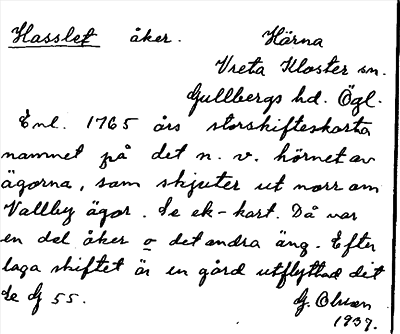 Hasslet åker. Härna
Vreta Kloster sn.
Gullbergs hd. Ögl.
Enl. 1765 års storskifteskarta
namnet på det n. v. hörnet av
ägorna, som skjuter ut norr om
Vallby ägor. Se ek-kart. Då var
en del åker o det andra äng. Efter
laga skiftet är en gård utflyttad dit
Se G 55. G. Olsson
1937.